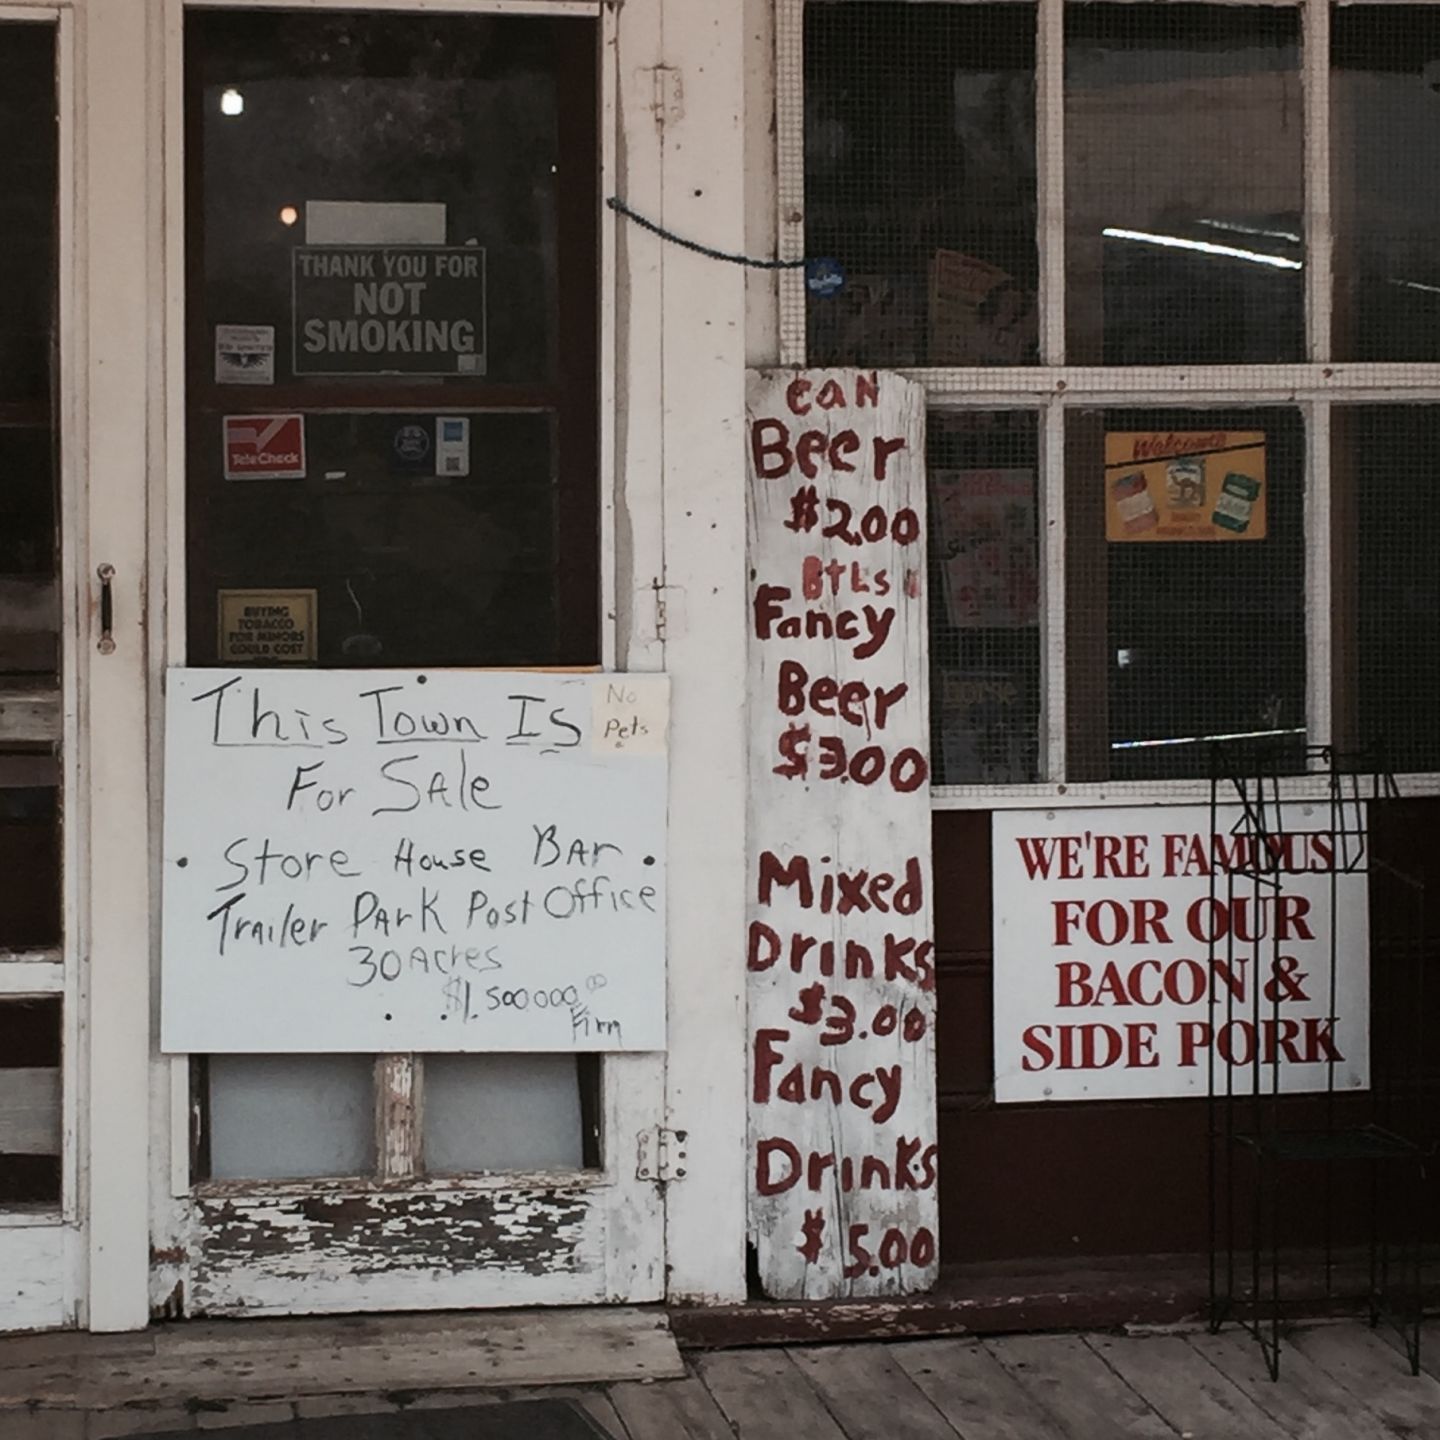 THANK YOU FOR
NOT
SMOKING
TeleCheck
BUYING
TOBACCO
FOR MINORS
COULD COST
This Town Is
For SAle
Store House BAr
TrAiler PArk Post Office
30 Acres
$1.500000.00
Firm
No
Pets
CaN
Beer
$2.00
BtLs
Fancy
Beer
$3.00
Mixed
Drinks
$3.00
Fancy
Drinks
$5.00
Welcome
WE'RE FAMOUS
FOR OUR
BACON &
SIDE PORK